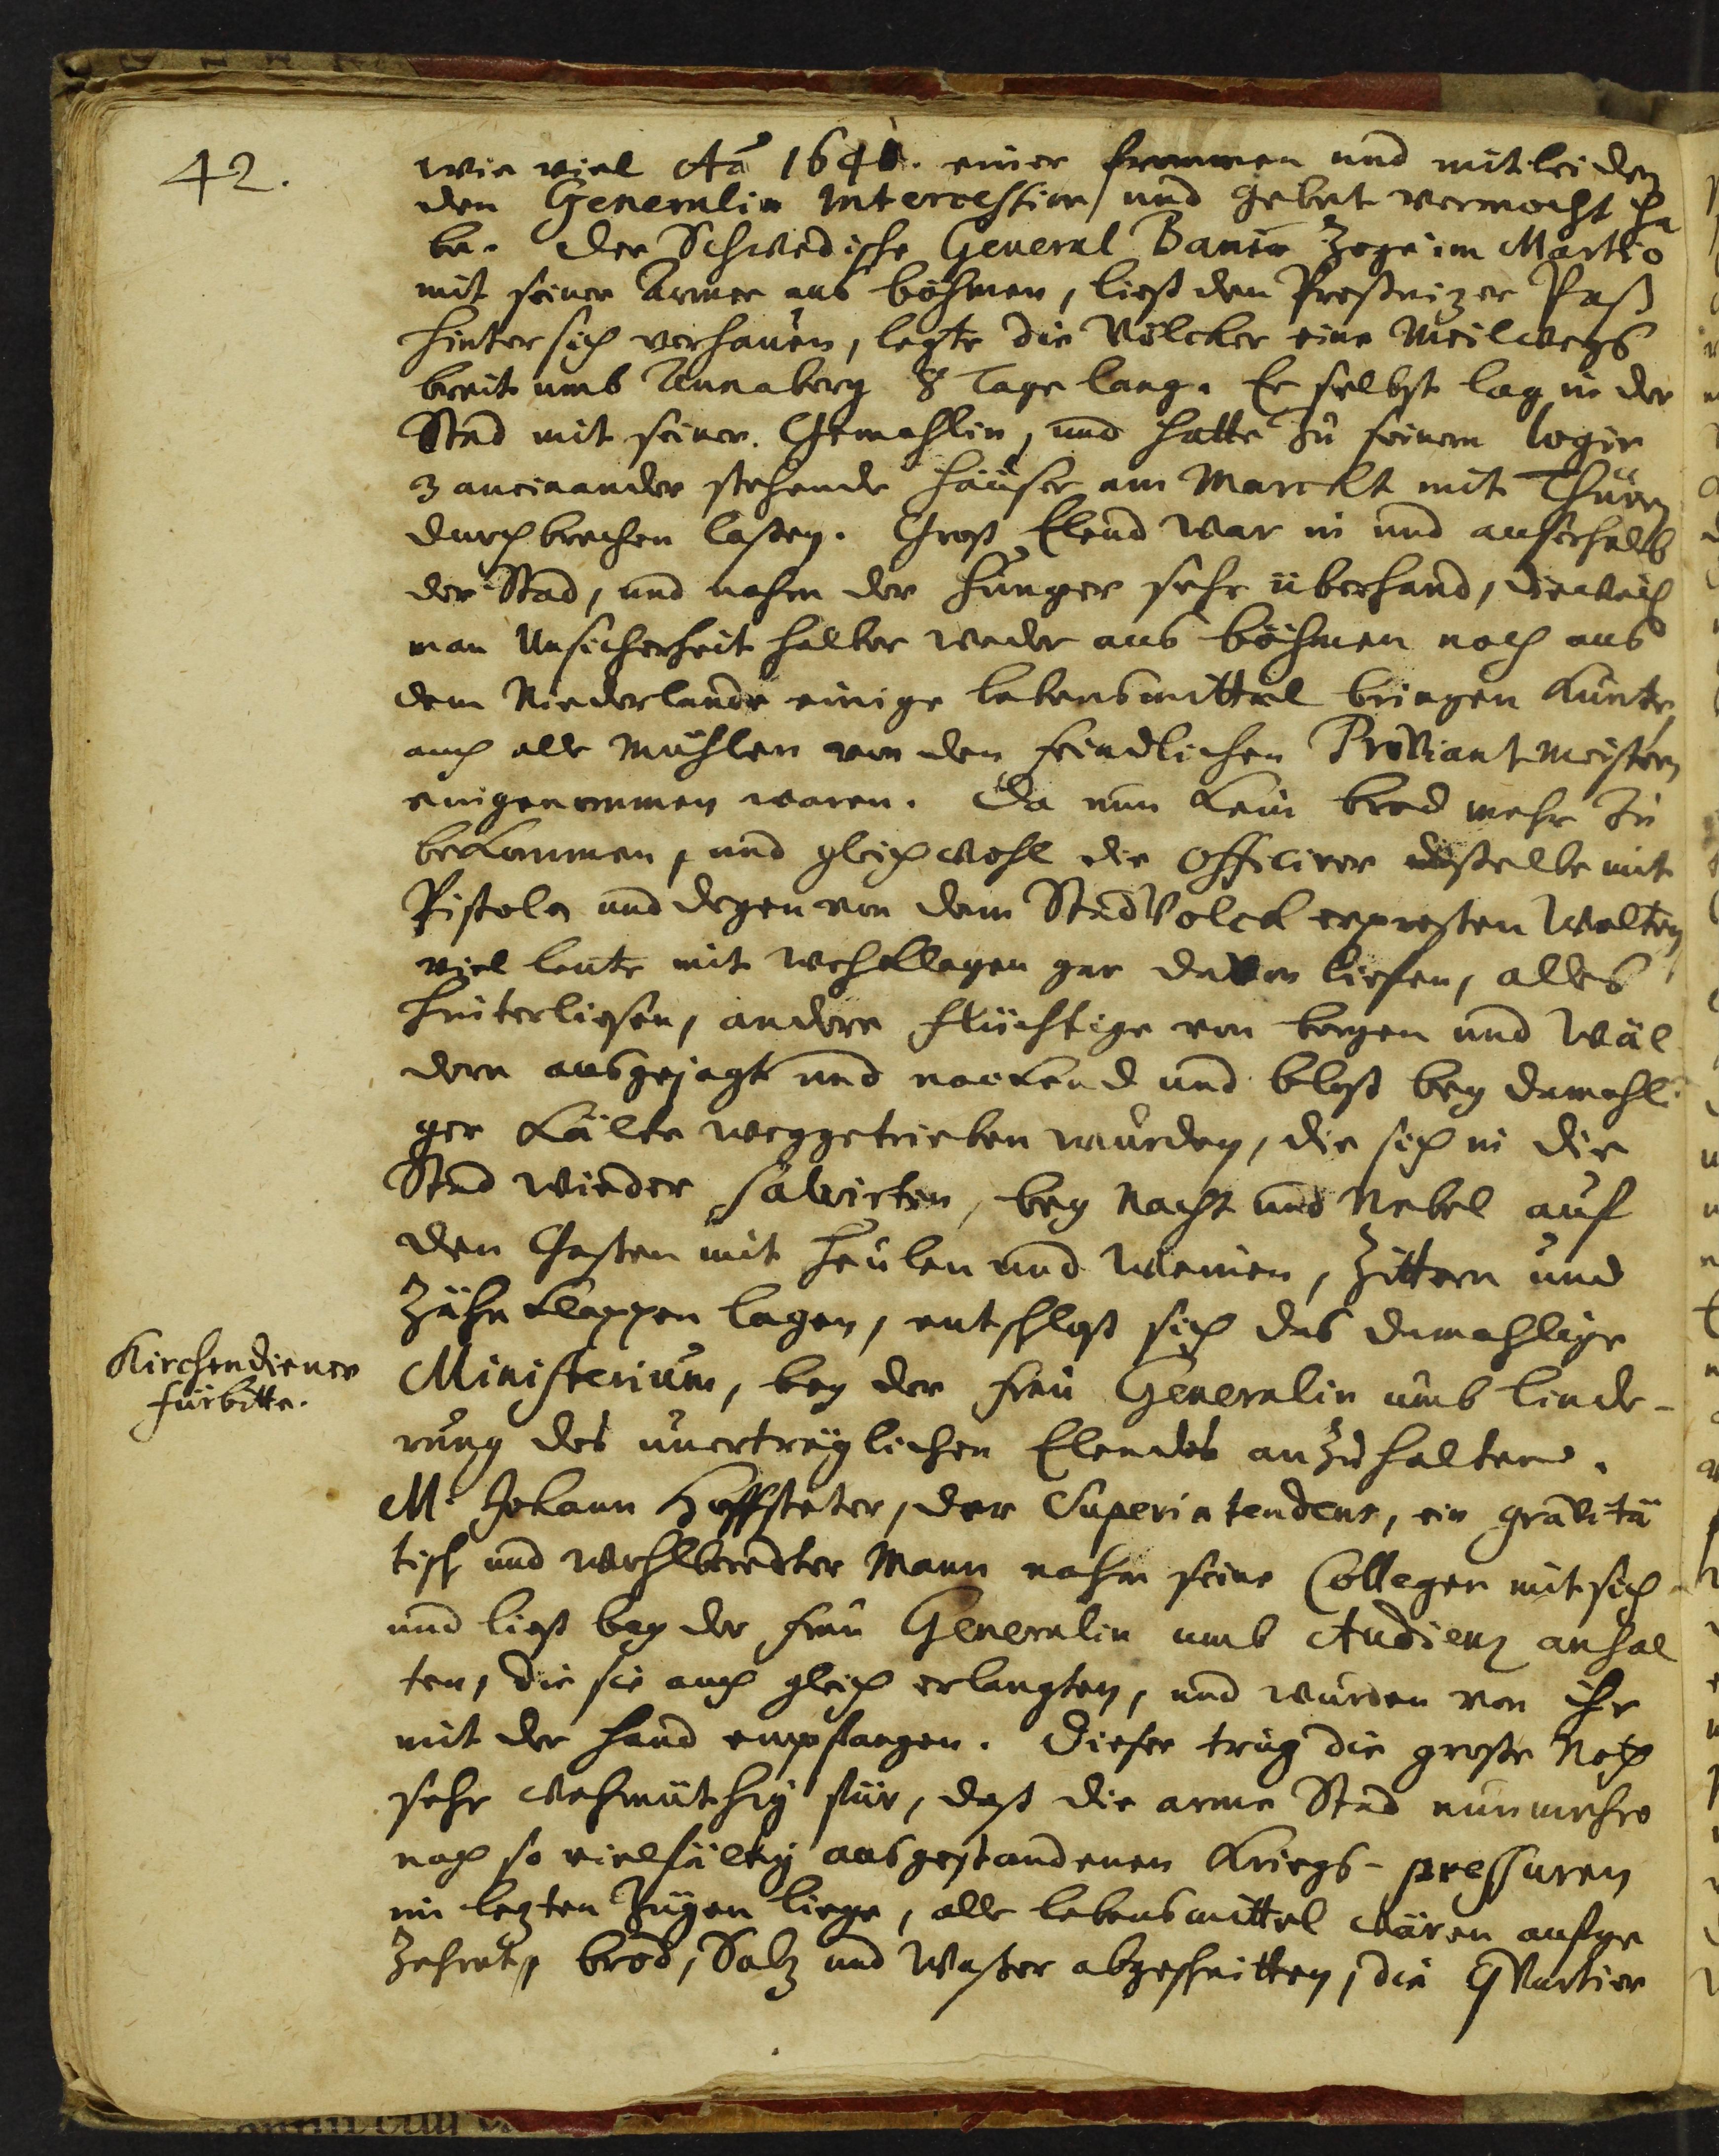 42.
wie viel Aõ 1641. einer frommen und mitleiden
den Generalin Intercession, und gebet vermocht ha
be. Der Schwedische General Banir zoge im Martio
mit seiner Armee aus böhmen, ließ den Preßnizer Paß
hinter sich verhauen, legte die Völcker eine Meilwegs
breit umb Annaberg 8 Tage lang. Er selbst lag in der
Stad mit seiner Gemahlin, und hatte zu seinem logir
3 aneinander stehende häuser am Marckt mit Thüren
durchbrechen laßen. Groß Elend war in und auserhalb
der Stad, und nahm der hunger sehr überhand, dieweil
man Unsicherheit halber weder aus böhmen noch aus
dem Niederlande einige lebensmittel bringen kunte,
auch alle Mühlen von den feindlichen Proviantmeistern
eingenommen waren. Da nun kein brod mehr zu
bekommen, und gleichwohl die Officirer daßelbe mit
Pistolen und degen von dem Stadvolck erpresten wolten,
viel leute mit wehklagen gar davon liefen, alles
hinterliesen, andere flüchtige von bergen und Wäl
dern ausgejagt und nackend und bloß bey damahli
ger Kälte weggetrieben wurden, die sich in die
Stad wieder salvirten, bey Nacht und Nebel auf
den Gaßen mit heulen und Weinen, Zittern und
Zähnklappen lagen, entschloß sich das damahlige
Kirchendiener
fürbitte.
Ministerium, bey der frau Generalin umb linde-
rung des unerträglichen Elendes anzuhalten.
M. Johann Hoffsteter, der Superintendens, ein gravitä
tisch und wohlberedter Mann nahm seine Collegen mit sich
und ließ bey der frau Generalin umb Audienz anhal
ten, die sie auch gleich erlangten, und wurden von ihr
mit der hand empfangen. Dieser trug die große Noth
sehr wehmüthig für, daß die arme Stad nunmehro
nach so vielfältig ausgestandenen Kriegs-pressuren
in lezten Zügen liege, alle lebensmittel wären aufge
zehret, brod, Salz und Waßer abgeschnitten, die Qvartier